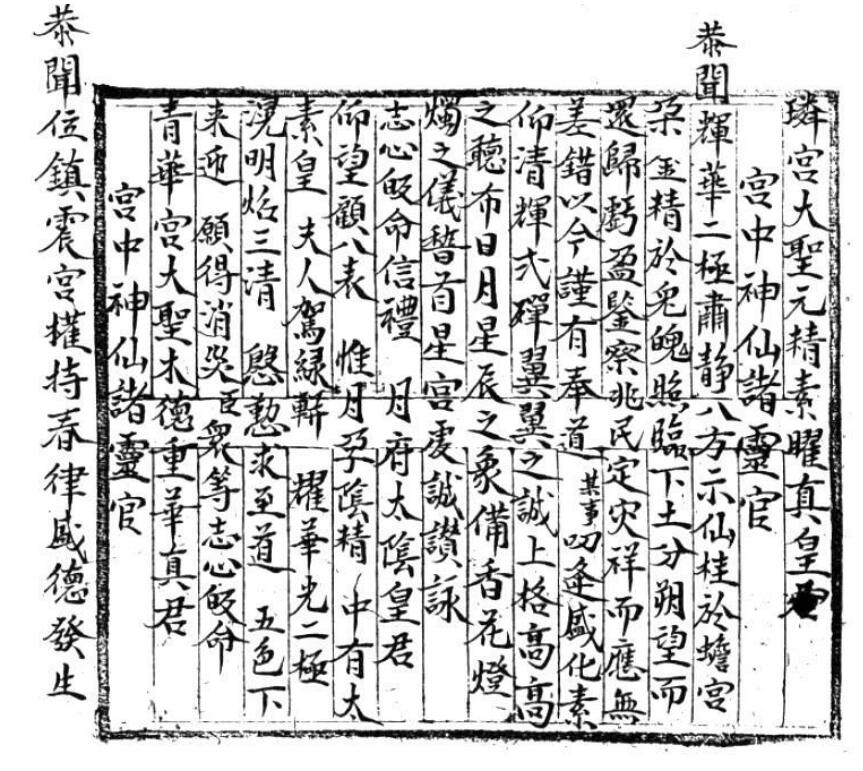 璘宫大聖元精素曜真皇
宫中神仙諸靈官
恭聞輝華二極肅静八方示仙桂於蟾宫
朶金精於兔魄照臨下土分朔望而
還歸虧盈鑒察兆民定灾祥而應無
差錯以今謹有奉道某事叨逢盛化素
仰清輝式殫翼翼之誠上格高高
之聽布日月星辰之象備香花燈
燭之儀稽首星宫虔誠讃詠
志心皈命信禮 月府太陰皇君
仰望顧八表 惟月孕陰精 中有太
素皇 夫人駕緑軿 耀華光二極
滉明焰三清 慇懃求至道 五色下
来迎 願得消災臣衆等志心皈命
青華宫大聖木德重華真君
宫中神仙諸靈官
恭聞位鎮震宫權持春律盛德發生